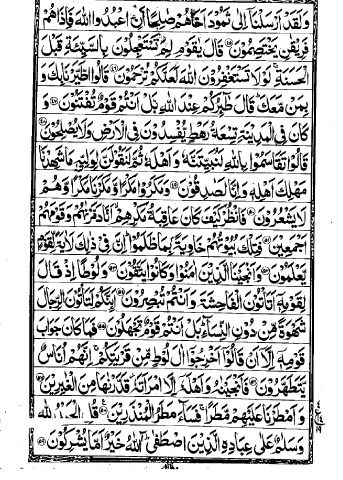 وَلَقَدْ اَرْسَلْنَاۤ اِلٰى ثَمُوْدَ اَخَاهُمْ صٰلِحًا اَنِ اعْبُدُوا اللّٰهَ فَاِذَا هُمْ
فَرِيْقٰنِ يَخْتَصِمُوْنَ ۝ قَالَ يٰقَوْمِ لِمَ تَسْتَعْجِلُوْنَ بِالسَّيِّئَةِ قَبْلَ
الْحَسَنَةِ ۚ لَوْ لَا تَسْتَغْفِرُوْنَ اللّٰهَ لَعَلَّكُمْ تُرْحَمُوْنَ ۝ قَالُوا اطَّيَّرْنَا بِكَ وَ
بِمَنْ مَّعَكَ ؕ قَالَ طٰٓئِرُكُمْ عِنْدَ اللّٰهِ بَلْ اَنْتُمْ قَوْمٌ تُفْتَنُوْنَ ۝ وَ
كَانَ فِى الْمَدِيْنَةِ تِسْعَةُ رَهْطٍ يُّفْسِدُوْنَ فِى الْاَرْضِ وَلَا يُصْلِحُوْنَ ۝
قَالُوْا تَقَاسَمُوْا بِاللّٰهِ لَنُبَيِّتَنَّهٗ وَاَهْلَهٗ ثُمَّ لَنَقُوْلَنَّ لِوَلِيِّهٖ مَا شَهِدْنَا
مَهْلِكَ اَهْلِهٖ وَاِنَّا لَصٰدِقُوْنَ ۝ وَمَكَرُوْا مَكْرًا وَّمَكَرْنَا مَكْرًا وَّهُمْ
لَا يَشْعُرُوْنَ ۝ فَانْظُرْ كَيْفَ كَانَ عَاقِبَةُ مَكْرِهِمْ ۙ اَنَّا دَمَّرْنٰهُمْ وَقَوْمَهُمْ
اَجْمَعِيْنَ ۝ فَتِلْكَ بُيُوْتُهُمْ خَاوِيَةًۢ بِمَا ظَلَمُوْا ؕ اِنَّ فِىْ ذٰلِكَ لَاٰيَةً لِّقَوْمٍ
يَّعْلَمُوْنَ ۝ وَاَنْجَيْنَا الَّذِيْنَ اٰمَنُوْا وَكَانُوْا يَتَّقُوْنَ ۝ وَلُوْطًا اِذْ قَالَ
لِقَوْمِهٖۤ اَتَاْتُوْنَ الْفَاحِشَةَ وَاَنْتُمْ تُبْصِرُوْنَ ۝ اَئِنَّكُمْ لَتَاْتُوْنَ الرِّجَالَ
شَهْوَةً مِّنْ دُوْنِ النِّسَآءِ ؕ بَلْ اَنْتُمْ قَوْمٌ تَجْهَلُوْنَ ۝ فَمَا كَانَ جَوَابَ
قَوْمِهٖۤ اِلَّاۤ اَنْ قَالُوْۤا اَخْرِجُوْۤا اٰلَ لُوْطٍ مِّنْ قَرْيَتِكُمْ ۚ اِنَّهُمْ اُنَاسٌ
يَّتَطَهَّرُوْنَ ۝ فَاَنْجَيْنٰهُ وَاَهْلَهٗۤ اِلَّا امْرَاَتَهٗ ؗ قَدَّرْنٰهَا مِنَ الْغٰبِرِيْنَ ۝
وَاَمْطَرْنَا عَلَيْهِمْ مَّطَرًا ۚ فَسَآءَ مَطَرُ الْمُنْذَرِيْنَ ۝ قُلِ الْحَمْدُ لِلّٰهِ
وَسَلٰمٌ عَلٰى عِبَادِهِ الَّذِيْنَ اصْطَفٰى ؕ آٰللّٰهُ خَيْرٌ اَمَّا يُشْرِكُوْنَ ۝